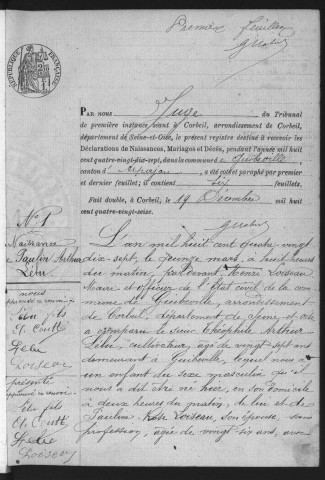 Premier feuillet
RÉPUBLIQUE FRANÇAISE
PAR NOUS Juge du Tribunal
de première instance séant à Corbeil, arrondissement de Corbeil,
département de Seine-et-Oise, le présent registre destiné à recevoir les
Déclarations de Naissances, Mariages et Décès, pendant l'année mil huit
cent quatre-vingt-dix-sept, dans la commune de Guibeville
canton d'Arpajon, a été coté et paraphé par premier
et dernier feuillet; il contient six feuillets.
Fait double, à Corbeil, le 19 Décembre mil huit
cent quatre-vingt-seize.
N° 1
Naissance
de
Paulin Arthur
L'an mil huit cent quatre vingt
dix-sept, le quinze mars, à huit heures
du matin, pardevant Henri Loiseau
Maire et officier de l'état civil de la com
mune de Guibeville, arrondissement
de Corbeil, département de Seine et Oise
a comparu le sieur Théophile Arthur
cultivateur, âgé de vingt sept ans
demeurant à Guibeville, lequel nous a
un enfant du sexe masculin qu'il
nous a dit être né hier, en son domicile
à deux heures du matin, de lui et de
Pauline Loiseau, son épouse, sans
profession, âgée de vingt six ans, avec
Loiseau
présenté
Loiseau